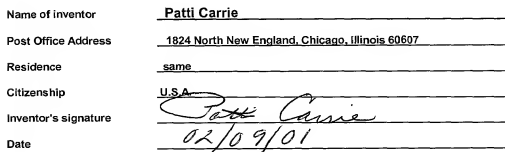 Name of inventor Patti Carrie
Post Office Address 1824 North New England, Chicago, Illinois 60607
Residence same
Citizenship U.S.A.
Inventor's signature Patti Carrie
Date 02/09/01